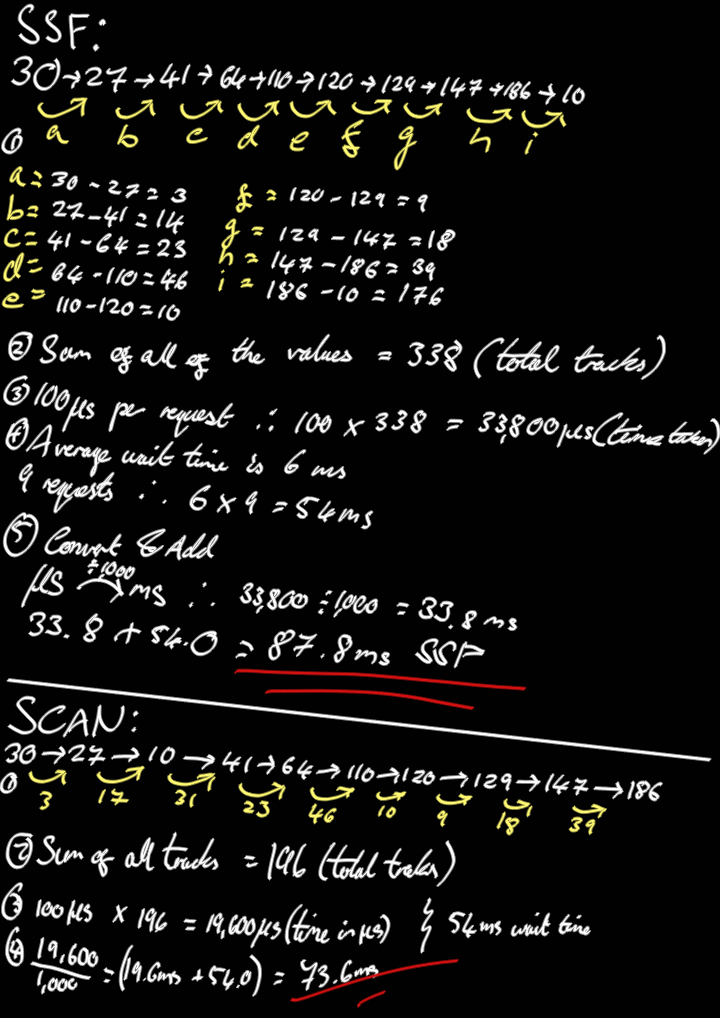 SSF:
30→27→41→64→110→120→129→147→186→10
① a b c d e f g h i
a= 30 - 27 = 3
b= 27 - 41 = 14
c= 41 - 64 = 23
d= 64 - 110 = 46
e= 110 - 120 = 10
f = 120 - 129 = 9
g = 129 - 147 = 18
h = 147 - 186 = 39
i = 186 - 10 = 176
② Sum of all of the values = 338 (total tracks)
③ 100μs per request ∴ 100 x 338 = 33,800μs (time taken)
④ Average wait time is 6 ms
9 requests ∴ 6 x 9 = 54ms
⑤ Convert & Add
÷1000
μs → ms ∴ 33,800 ÷ 1,000 = 33.8 ms
33.8 + 54.0 = 87.8ms SSF
SCAN:
30→27→10→41→64→110→120→129→147→186
① 3 17 31 23 46 10 9 18 39
② Sum of all tracks = 196 (total tracks)
③ 100μs x 196 = 19,600μs (time in μs) 54ms wait time
④ 19,600/1,000 = (19.6ms + 54.0) = 73.6ms